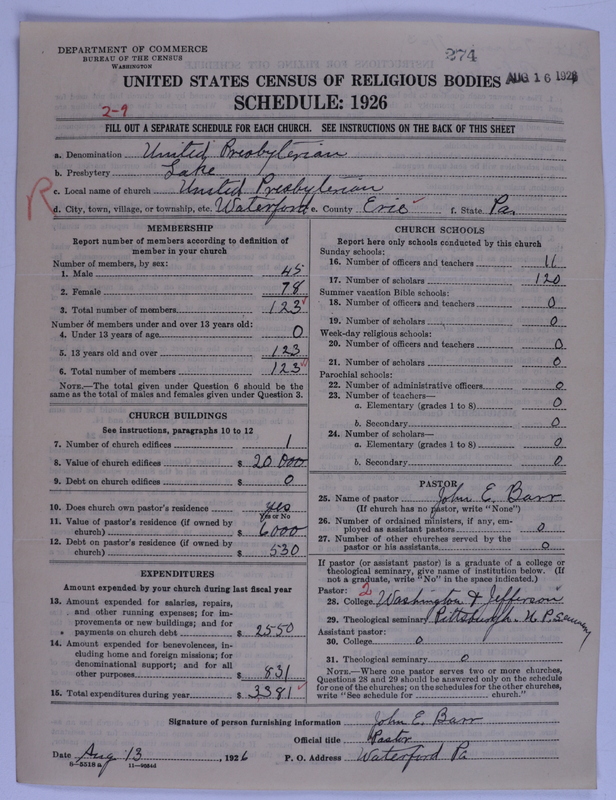 DEPARTMENT OF COMMERCE
BUREAU OF THE CENSUS
WASHINGTON
274
AUG 16 1926
UNITED STATES CENSUS OF RELIGIOUS BODIES
SCHEDULE: 1926
2-9
FILL OUT A SEPARATE SCHEDULE FOR EACH CHURCH. SEE INSTRUCTIONS ON THE BACK OF THIS SHEET
R
a. Denomination United Presbyterian
b. Presbytery Lake
c. Local name of church United Presbyterian
d. City, town, village, or township, etc. Waterford e. County Erie f. State Pa.
MEMBERSHIP
Report number of members according to definition of
member in your church
Number of members, by sex:
1. Male 45
2. Female 78
3. Total number of members 123
Number of members under and over 13 years old:
4. Under 13 years of age 0
5. 13 years old and over 123
6. Total number of members 123
NOTE.—The total given under Question 6 should be
same as the total of males and females given under Question 3.
CHURCH BUILDINGS
See instructions, paragraphs 10 to 12
7. Number of church edifices 1
8. Value of church edifices $ 20 000
9. Debt on church edifices $ 0
10. Does church own pastor's residence yes
Yes or No
11. Value of pastor's residence (if owned by
church) $ 6000
12. Debt on pastor's residence (if owned by
church) $ 530
EXPENDITURES
Amount expended by your church during last fiscal year
13. Amount expended for salaries, repairs,
and other running expenses; for im-
provements or new buildings; and for
payments on church debt $ 2550
14. Amount expended for benevolences, in-
cluding home and foreign missions; for
denominational support; and for all
other purposes $ 831
15. Total expenditures during year $ 3381
CHURCH SCHOOLS
Report here only schools conducted by this church
Sunday schools:
16. Number of officers and teachers 11
17. Number of scholars 120
Summer vacation Bible schools:
18. Number of officers and teachers 0
19. Number of scholars 0
Week-day religious schools:
20. Number of officers and teachers 0
21. Number of scholars 0
Parochial schools:
22. Number of administrative officers 0
23. Number of teachers—
a. Elementary (grades 1 to 8) 0
b. Secondary 0
24. Number of scholars—
a. Elementary (grades 1 to 8) 0
b. Secondary 0
PASTOR
25. Name of pastor John E. Barr
(If church has no pastor, write "None")
26. Number of ordained ministers, if any, em-
ployed as assistant pastors 0
27. Number of other churches served by the
pastor or his assistants 0
If pastor (or assistant pastor) is a graduate of a college or
theological seminary, give name of institution below. (If
not a graduate, write "No" in the space indicated.)
Pastor: 2
28. College Washington & Jefferson
29. Theological seminary Pittsburgh U. P. Seminary
Assistant pastor:
30. College 0
31. Theological seminary 0
NOTE.—Where one pastor serves two or more churches,
Questions 28 and 29 should be answered only on the schedule
for one of the churches; on the schedules for the other churches,
write "See schedule for church."
Signature of person furnishing information John E. Barr
Official title Pastor
Date Aug 13, 1926 P. O. Address Waterford Pa
8-5518 a 11-9054d